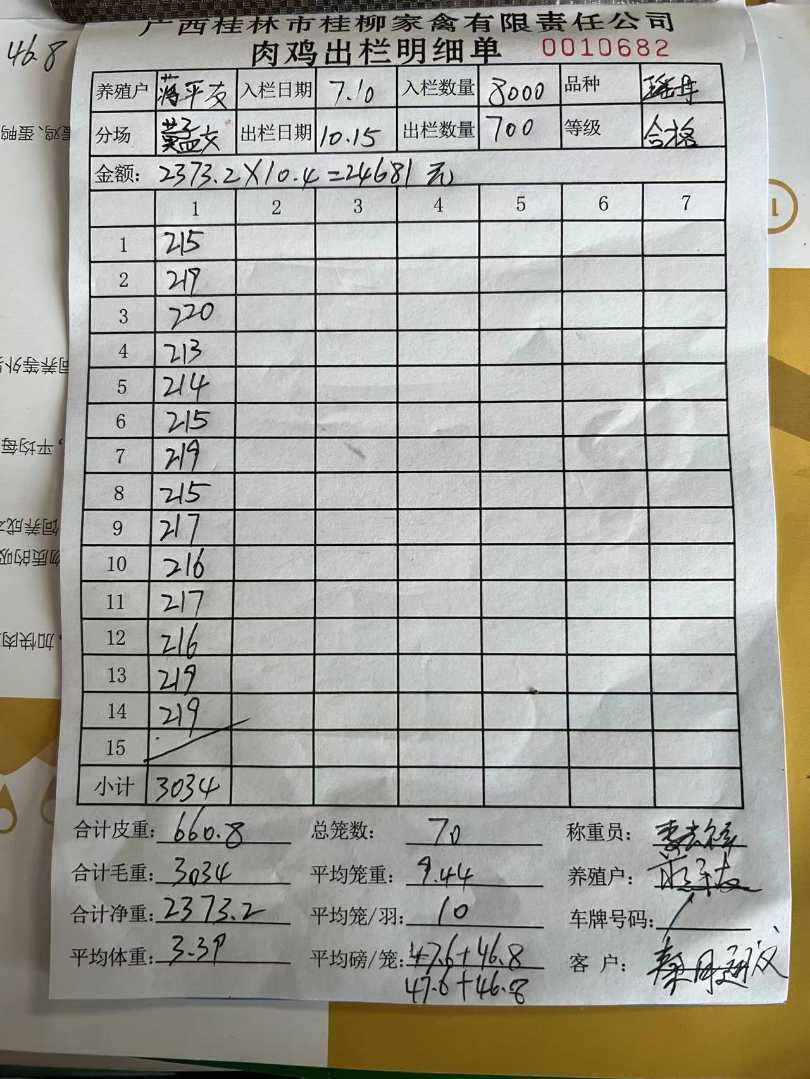 46.8
广西桂林市桂柳家禽有限责任公司
肉鸡出栏明细单 0010682
养殖户 蒋平友 入栏日期 7.10 入栏数量 8000 品种 瑶丹
分场 出栏日期 10.15 出栏数量 700 等级 合格
金额: 2373.2×10.4=24681元
1 2 3 4 5 6 7
1 215
2 219
3 220
4 213
5 214
6 215
7 219
8 215
9 217
10 216
11 217
12 216
13 219
14 219
15
小计 3034
合计皮重: 660.8 总笼数: 70 称重员:
合计毛重: 3034 平均笼重: 9.44 养殖户:
合计净重: 2373.2 平均笼/羽: 10 车牌号码:
平均体重: 3.39 平均磅/笼: 47.6+46.8 客户:
47.6+46.8